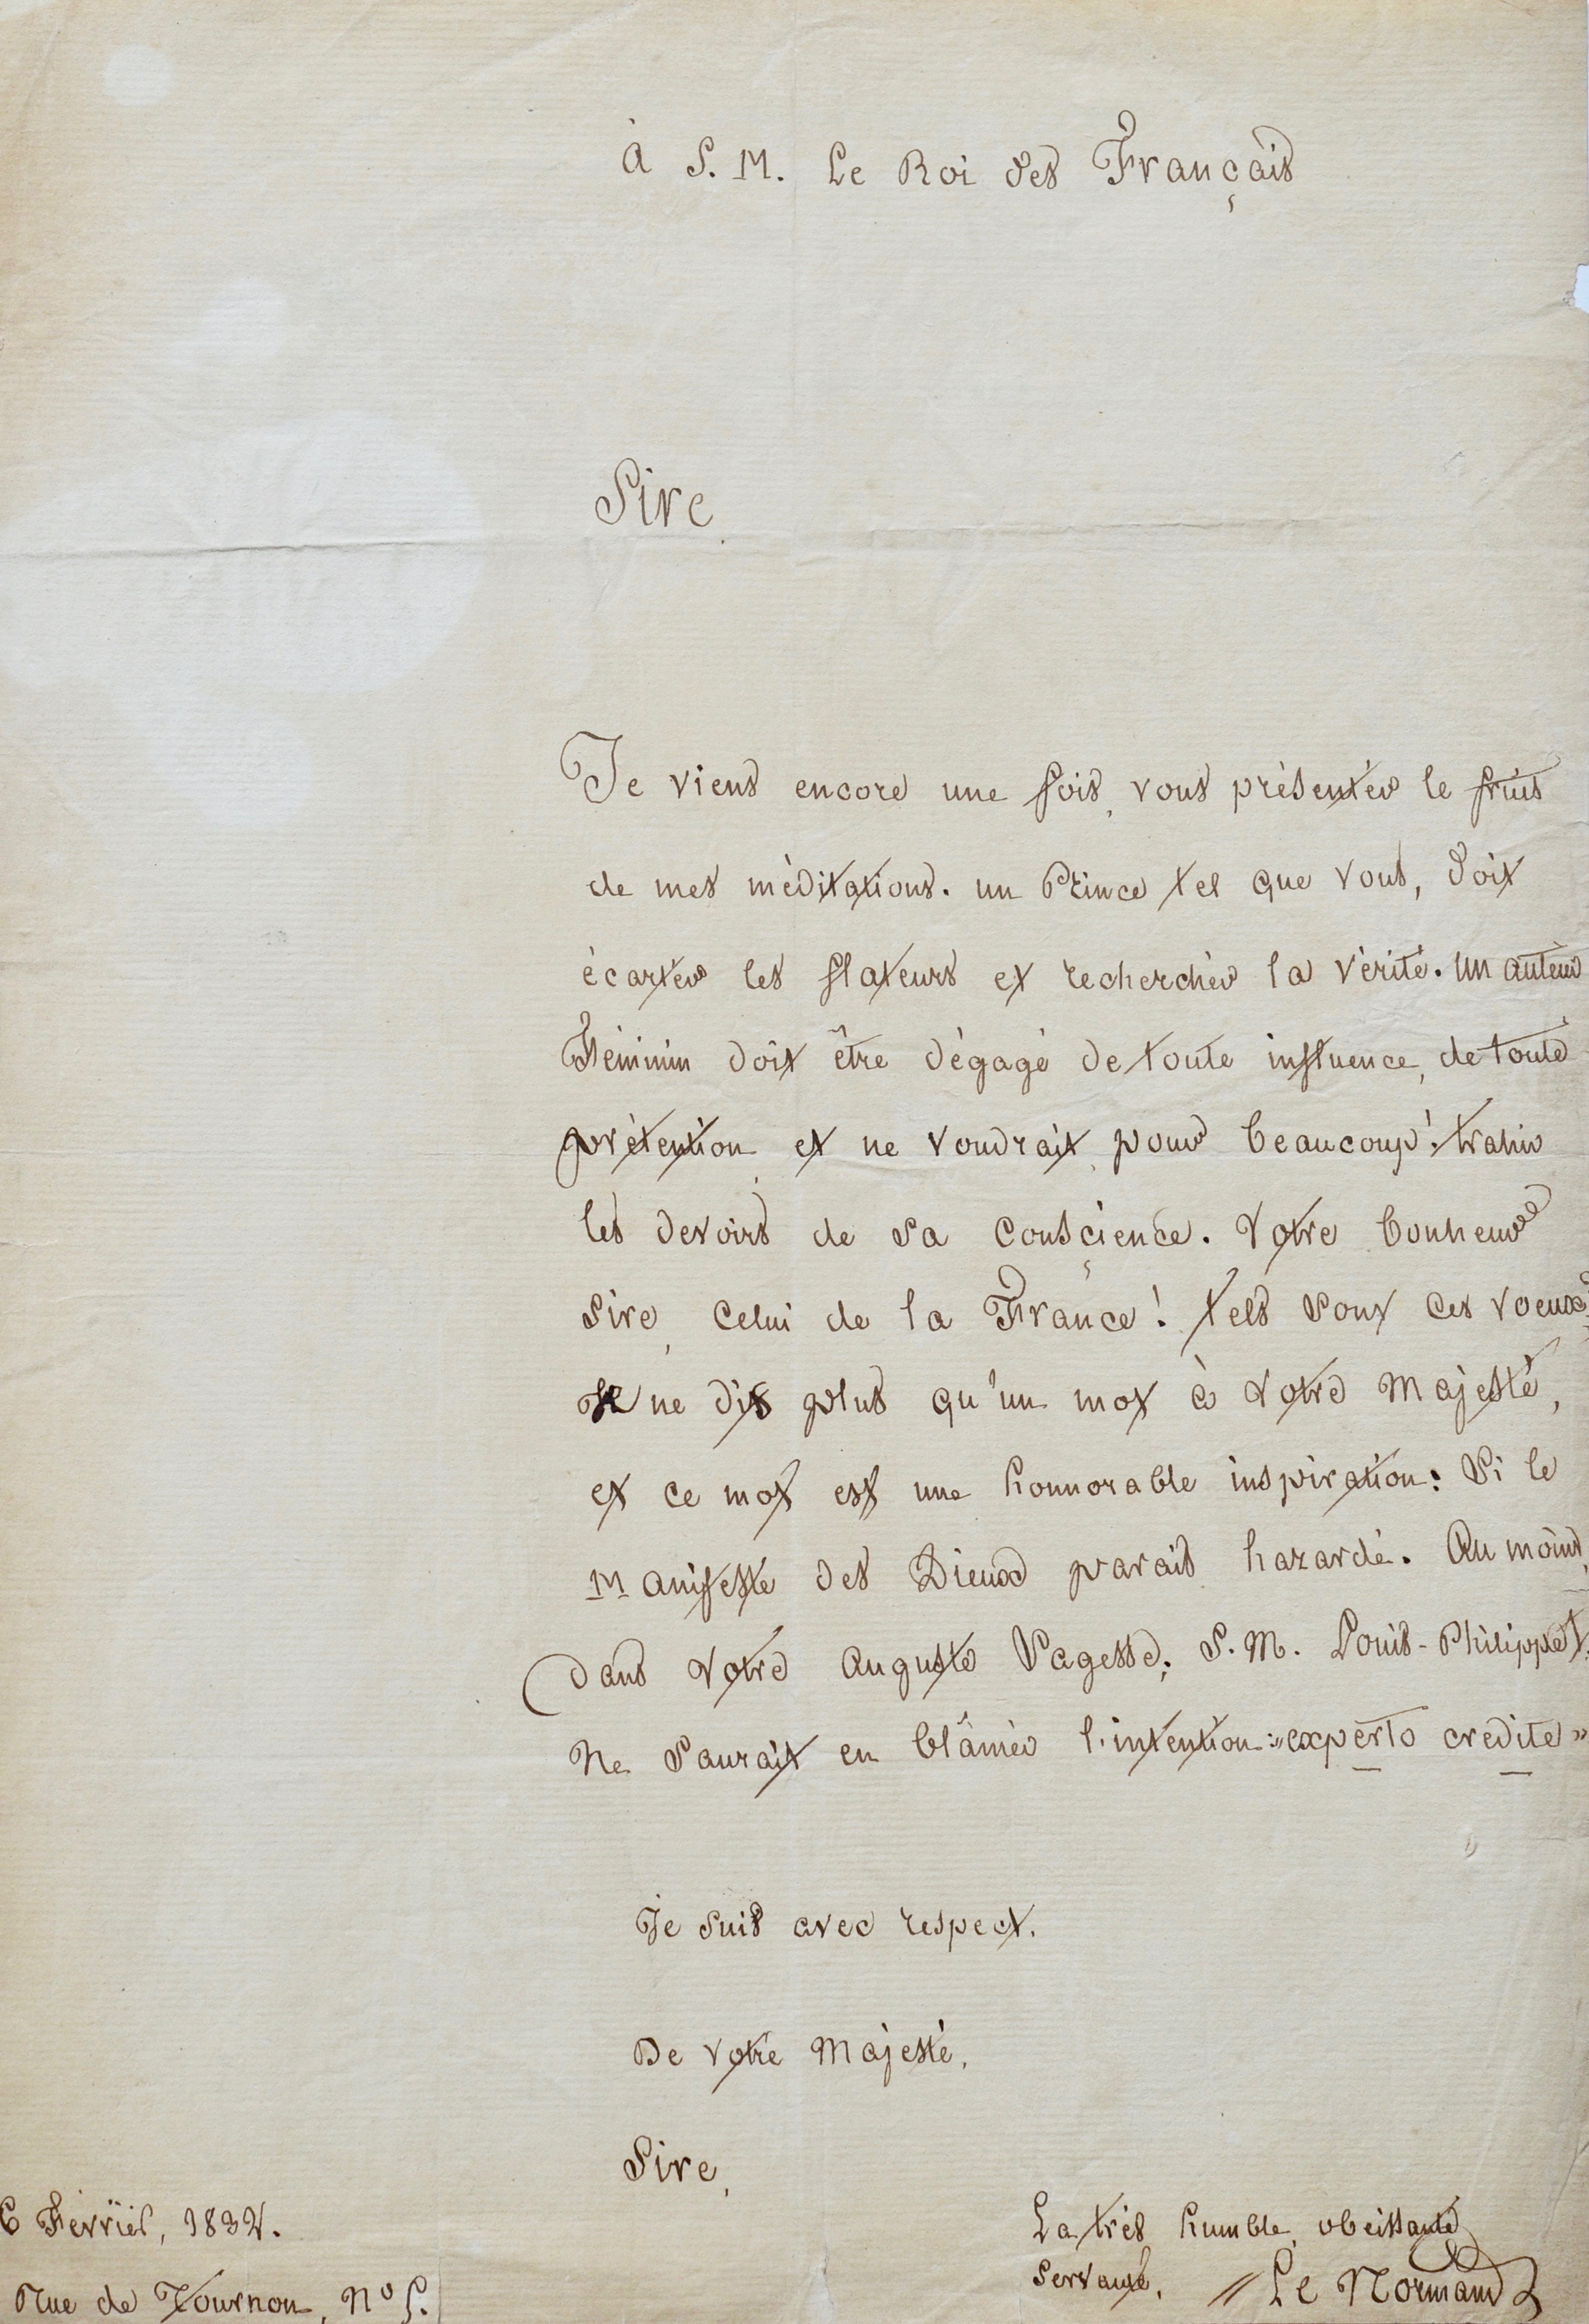 À S. M. Le Roi des Français
Sire
Je viens encore une fois, vous présenter le fruit
de mes méditations. un Prince tel que vous, doit
écarter les flateurs et rechercher la vérité. un auteur
Féminin doit être dégagé de toute influence, de toute
prétention, et ne voudrait, pour beaucoup! trahir
les devoirs de sa conscience. Votre bonheur
Sire, celui de la France! tels sont ces voeux,
Je ne dis plus qu'un mot à votre Majesté,
et ce mot est une honnorable inspiration: Si le
Manifeste des Dieux parait hazardé. Au moins,
dans votre auguste Sagesse; S. M. Louis-Philippe 1.
Ne Saurait en blâmer l'intention: "experto credite"
Je suis avec respect.
De votre Majesté,
Sire,
La très humble, obeissante
servante,
Le Normand
6 Fevrier, 1832.
Rue de Tournon, No 5.